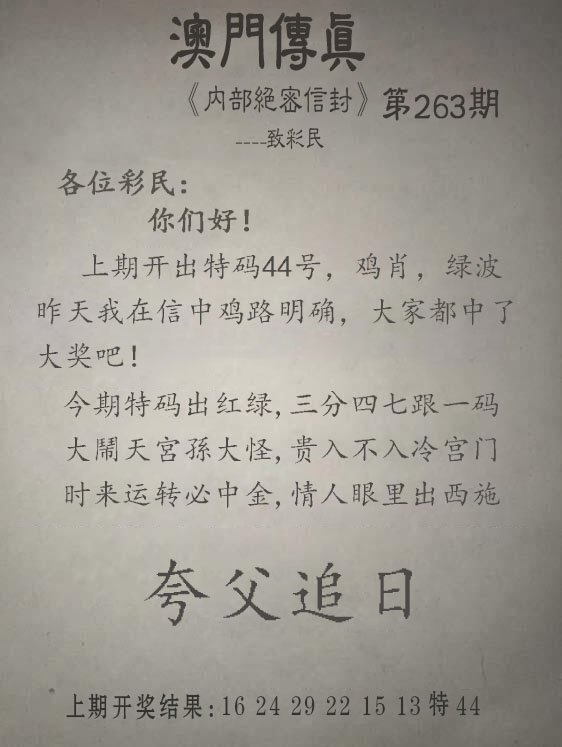 澳門傳真
《内部絕密信封》第263期
----致彩民
各位彩民：
你们好！
上期开出特码44号，鸡肖，绿波
昨天我在信中鸡路明确，大家都中了
大奖吧！
今期特码出红绿,三分四七跟一码
大鬧天宮孫大怪,贵入不入冷宫门
时来运转必中金,情人眼里出西施
夸父追日
上期开奖结果:16 24 29 22 15 13特44